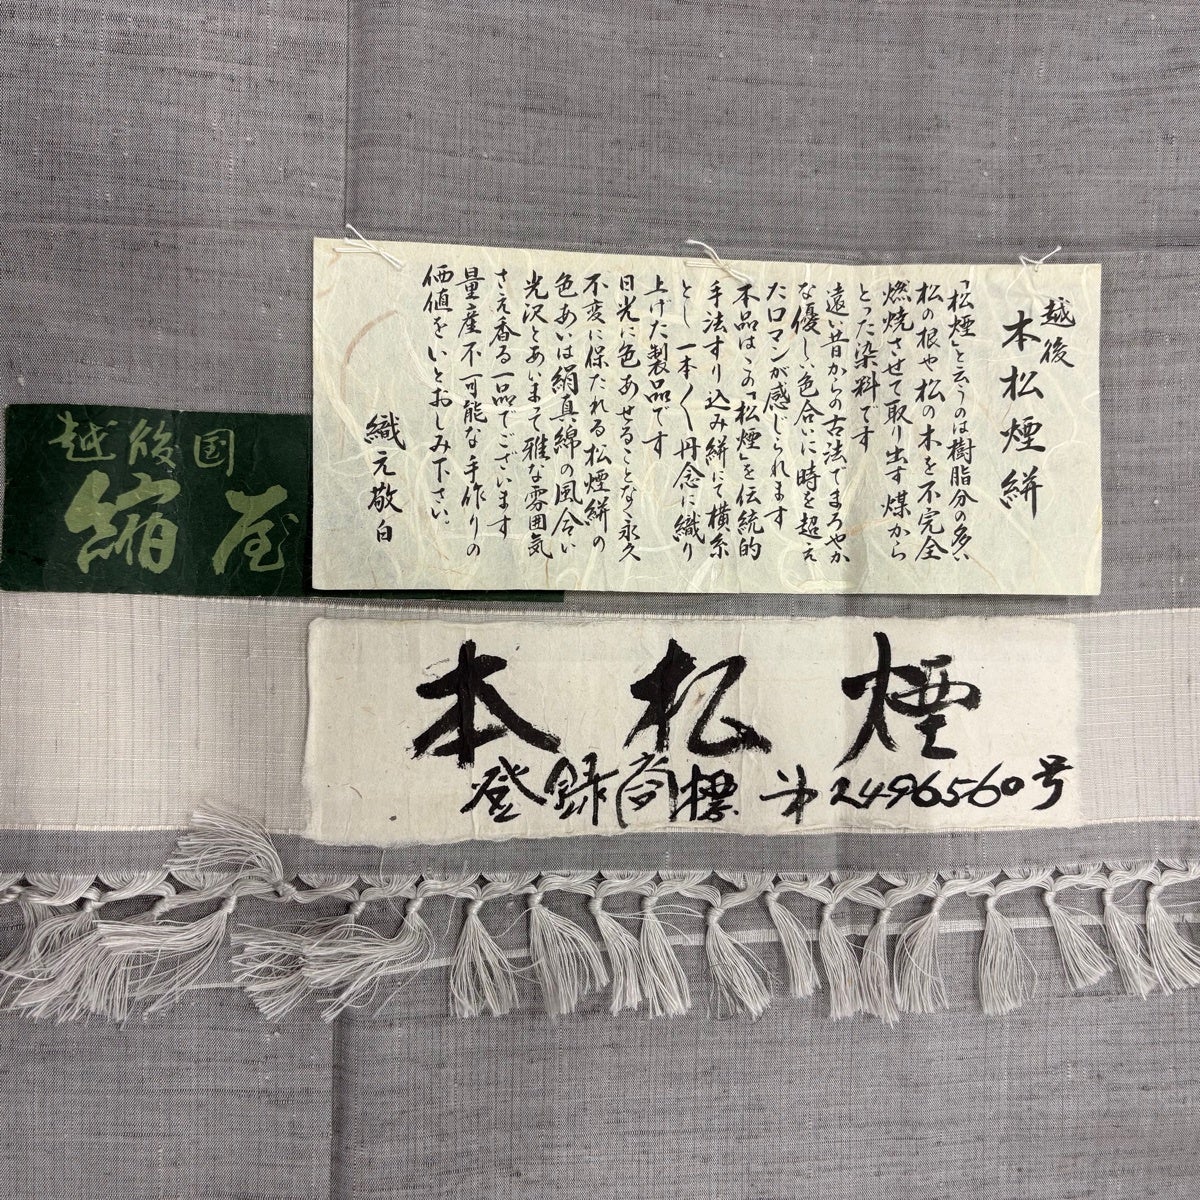 越後
本松煙絣
「松煙」と云うのは樹脂分の多い
松の根や松の木を不完全
燃焼させて取り出す煤から
とった染料です
遠い昔からの古法でまろやか
な優しい色合いに時を超え
たロマンが感じられます
本品はこの「松煙」を伝統的
手法すり込み絣にて横糸
とし一本〱丹念に織り
上げた製品です
日光に色あせることなく永久
不変に保たれる松煙絣の
色あいは絹真綿の風合い
光沢とあいまって雅な雰囲気
さえ香る一品でございます
量産不可能な手作りの
価値をいとおしみ下さい。
織元敬白
越後国
縮屋
本松煙
登録商標 第2496560号